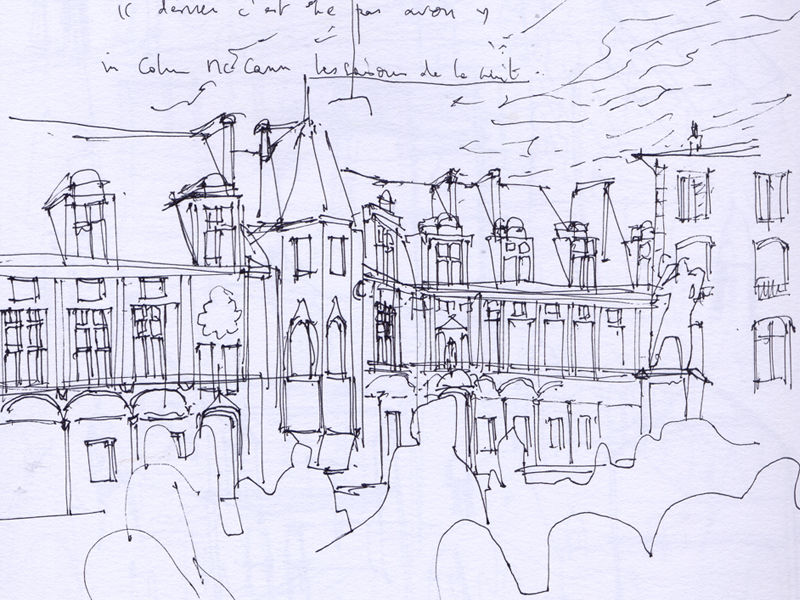 « dernier c'est ne pas avoir »
in Colum McCann les saisons de la nuit.